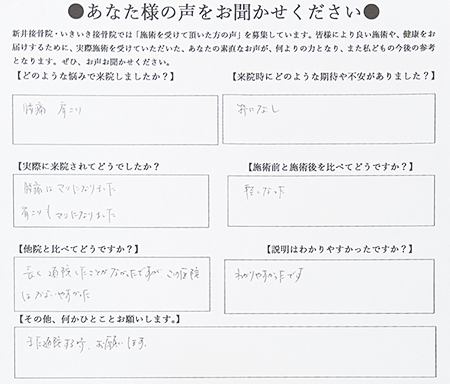 ●あなた様の声をお聞かせください●
新井接骨院・いきいき接骨院では「施術を受けて頂いた方の声」を募集しています。皆様により良い施術や、健康をお
届けするために、実際施術を受けていただいた、あなたの素直なお声が、何よりの力となり、また私どもの今後の参考
となります。ぜひ、お声お聞かせください。
【どのような悩みで来院しましたか？】
腰痛 肩こり
【来院時にどのような期待や不安がありました？】
特になし
【実際に来院されてどうでしたか？
腰痛はマシになりました
肩こりもマシになりました
【施術前と施術後を比べてどうですか？】
軽くなった
【他院と比べてどうですか？】
長く通院したことがなかったですが、この医院
は かよいやすかった
【説明はわかりやすかったですか？】
わかりやすかったです
【その他、何かひとことお願いします。】
また通院する時、お願いします。